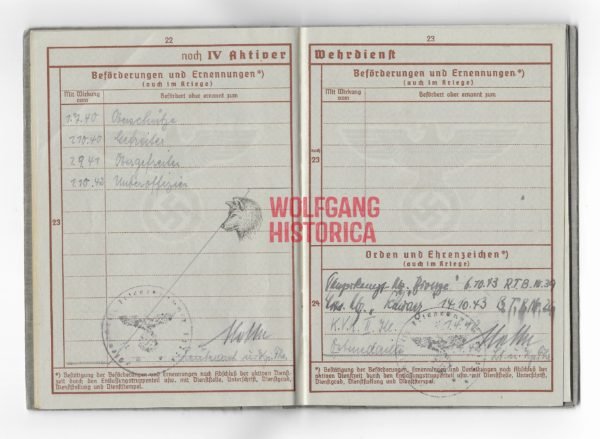 22
noch IV Aktiver
Beförderungen und Ernennungen*)
(auch im Kriege)
Mit Wirkung vom
Befördert oder ernannt zum
1.7.40 Oberschütze
1.10.40 Gefreiter
2.9.41 Obergefreiter
1.10.42 Unteroffizier
23
*) Bestätigung der Beförderungen und Ernennungen nach Abschluß der aktiven Dienst-
zeit durch den Entlassungstruppenteil usw. mit Dienststelle, Unterschrift, Dienstgrad,
Dienststellung und Dienststempel.
WOLFGANG
HISTORICA
23
Wehrdienst
Beförderungen und Ernennungen*)
(auch im Kriege)
Mit Wirkung vom
Befördert oder ernannt zum
noch
23
Orden und Ehrenzeichen*)
(auch im Kriege)
24
"Bronze" 6.10.43 R.T.B. Nr.
14.10.43
K.V.K. II. Kl.
*) Bestätigung der Beförderungen, Ernennungen und Verleihungen nach Abschluß der
aktiven Dienstzeit durch den Entlassungstruppenteil usw. mit Dienststelle, Unterschrift,
Dienstgrad, Dienststellung und Dienststempel.